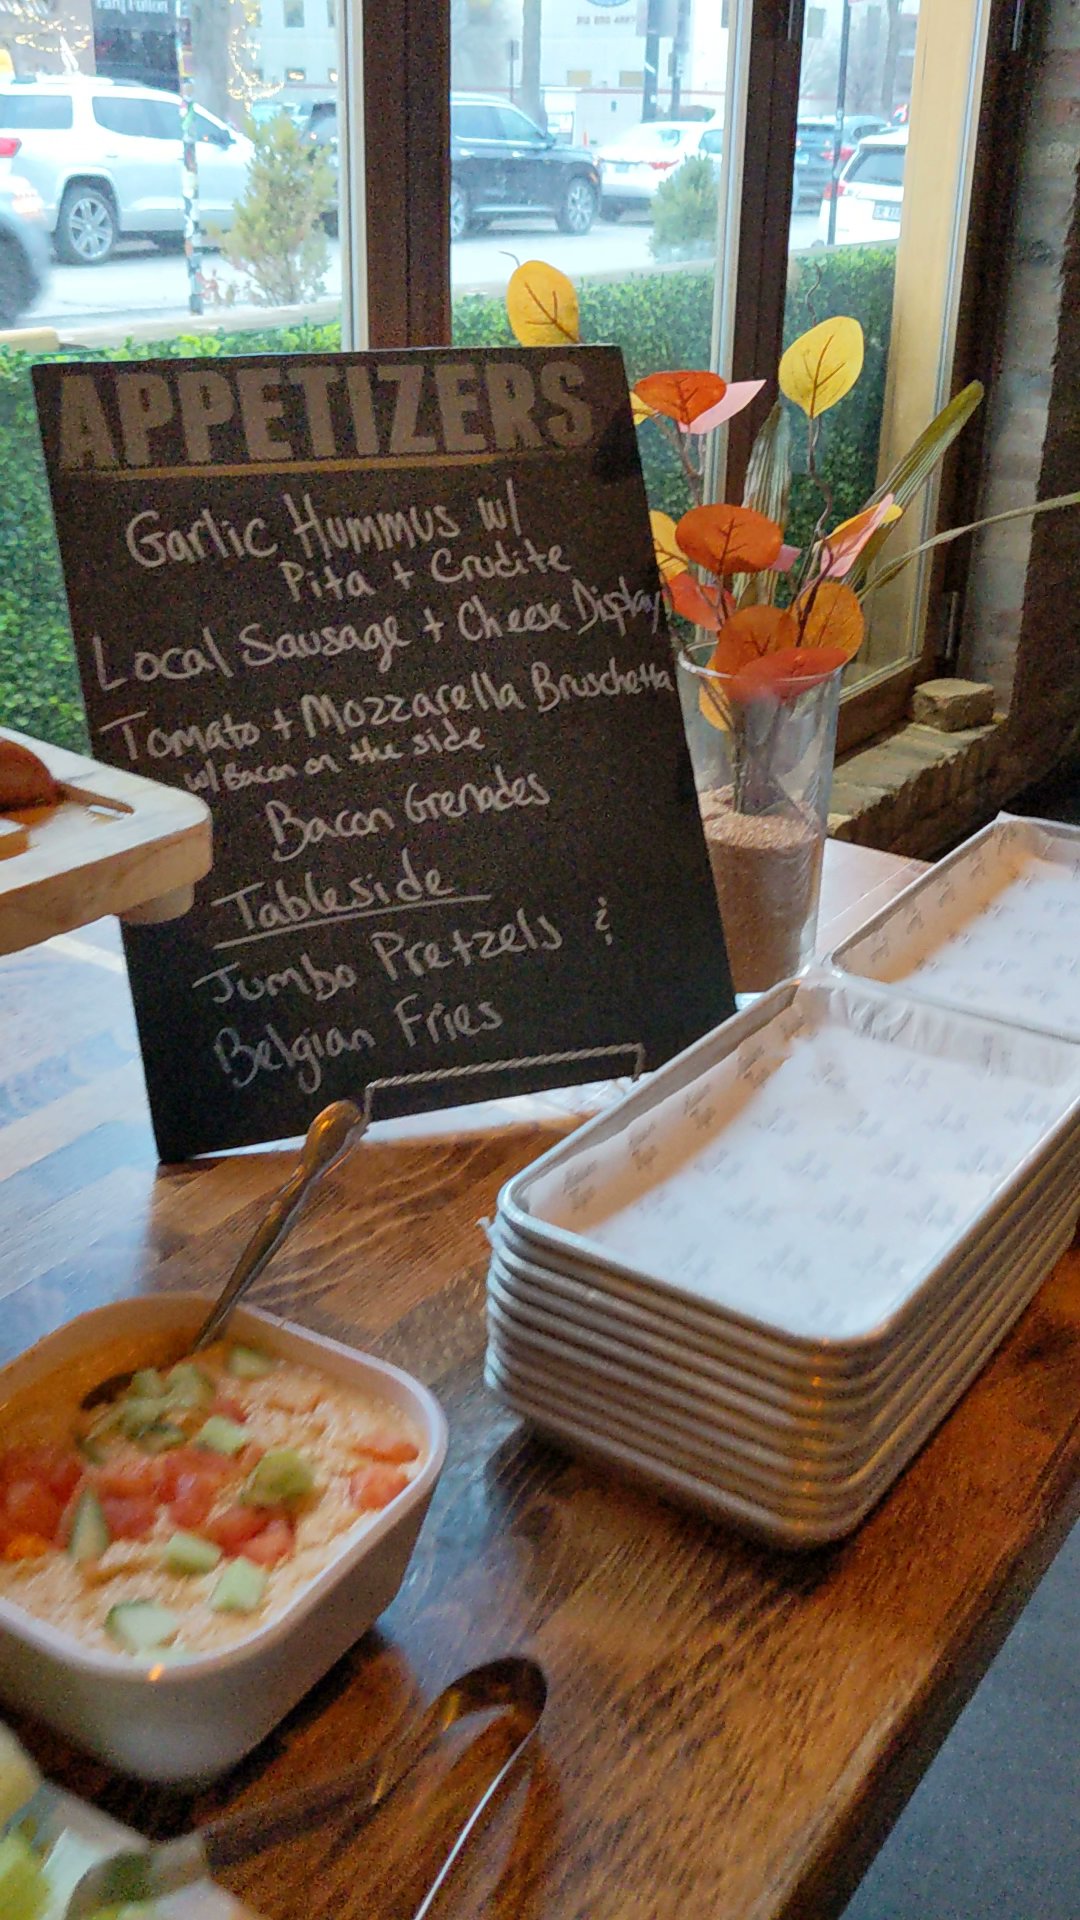 APPETIZERS
Garlic Hummus w/
Pita + Crudite
Local Sausage + Cheese Display
Tomato + Mozzarella Bruschetta
w/ Bacon on the side
Bacon Grenades
Tableside
Jumbo Pretzels &
Belgian Fries